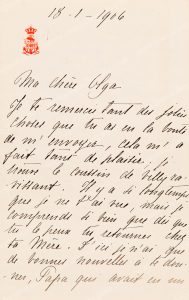 18-1-1906
Ma chère Olga
Je te remercie tant des jolies
choses que tu as eu la bonté
de m'envoyer, cela m'a
fait tant de plaisir. je
trouve le coussin de ra-
vissant. Il y a si longtemps
que je ne t'ai vue, mais je
comprends si bien que dès que
tu le peux tu retournes chez
ta Mère. D'ici je n'ai que
de bonnes nouvelles à te don-
ner, Papa qui avait eu un